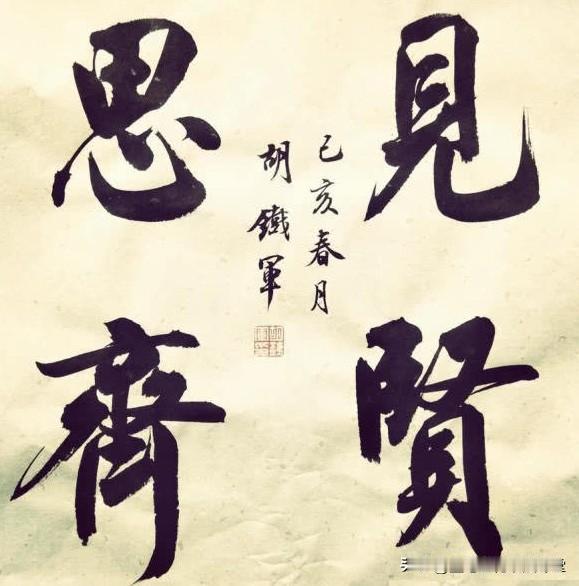 見賢
思齊
己亥春月
胡鐵軍